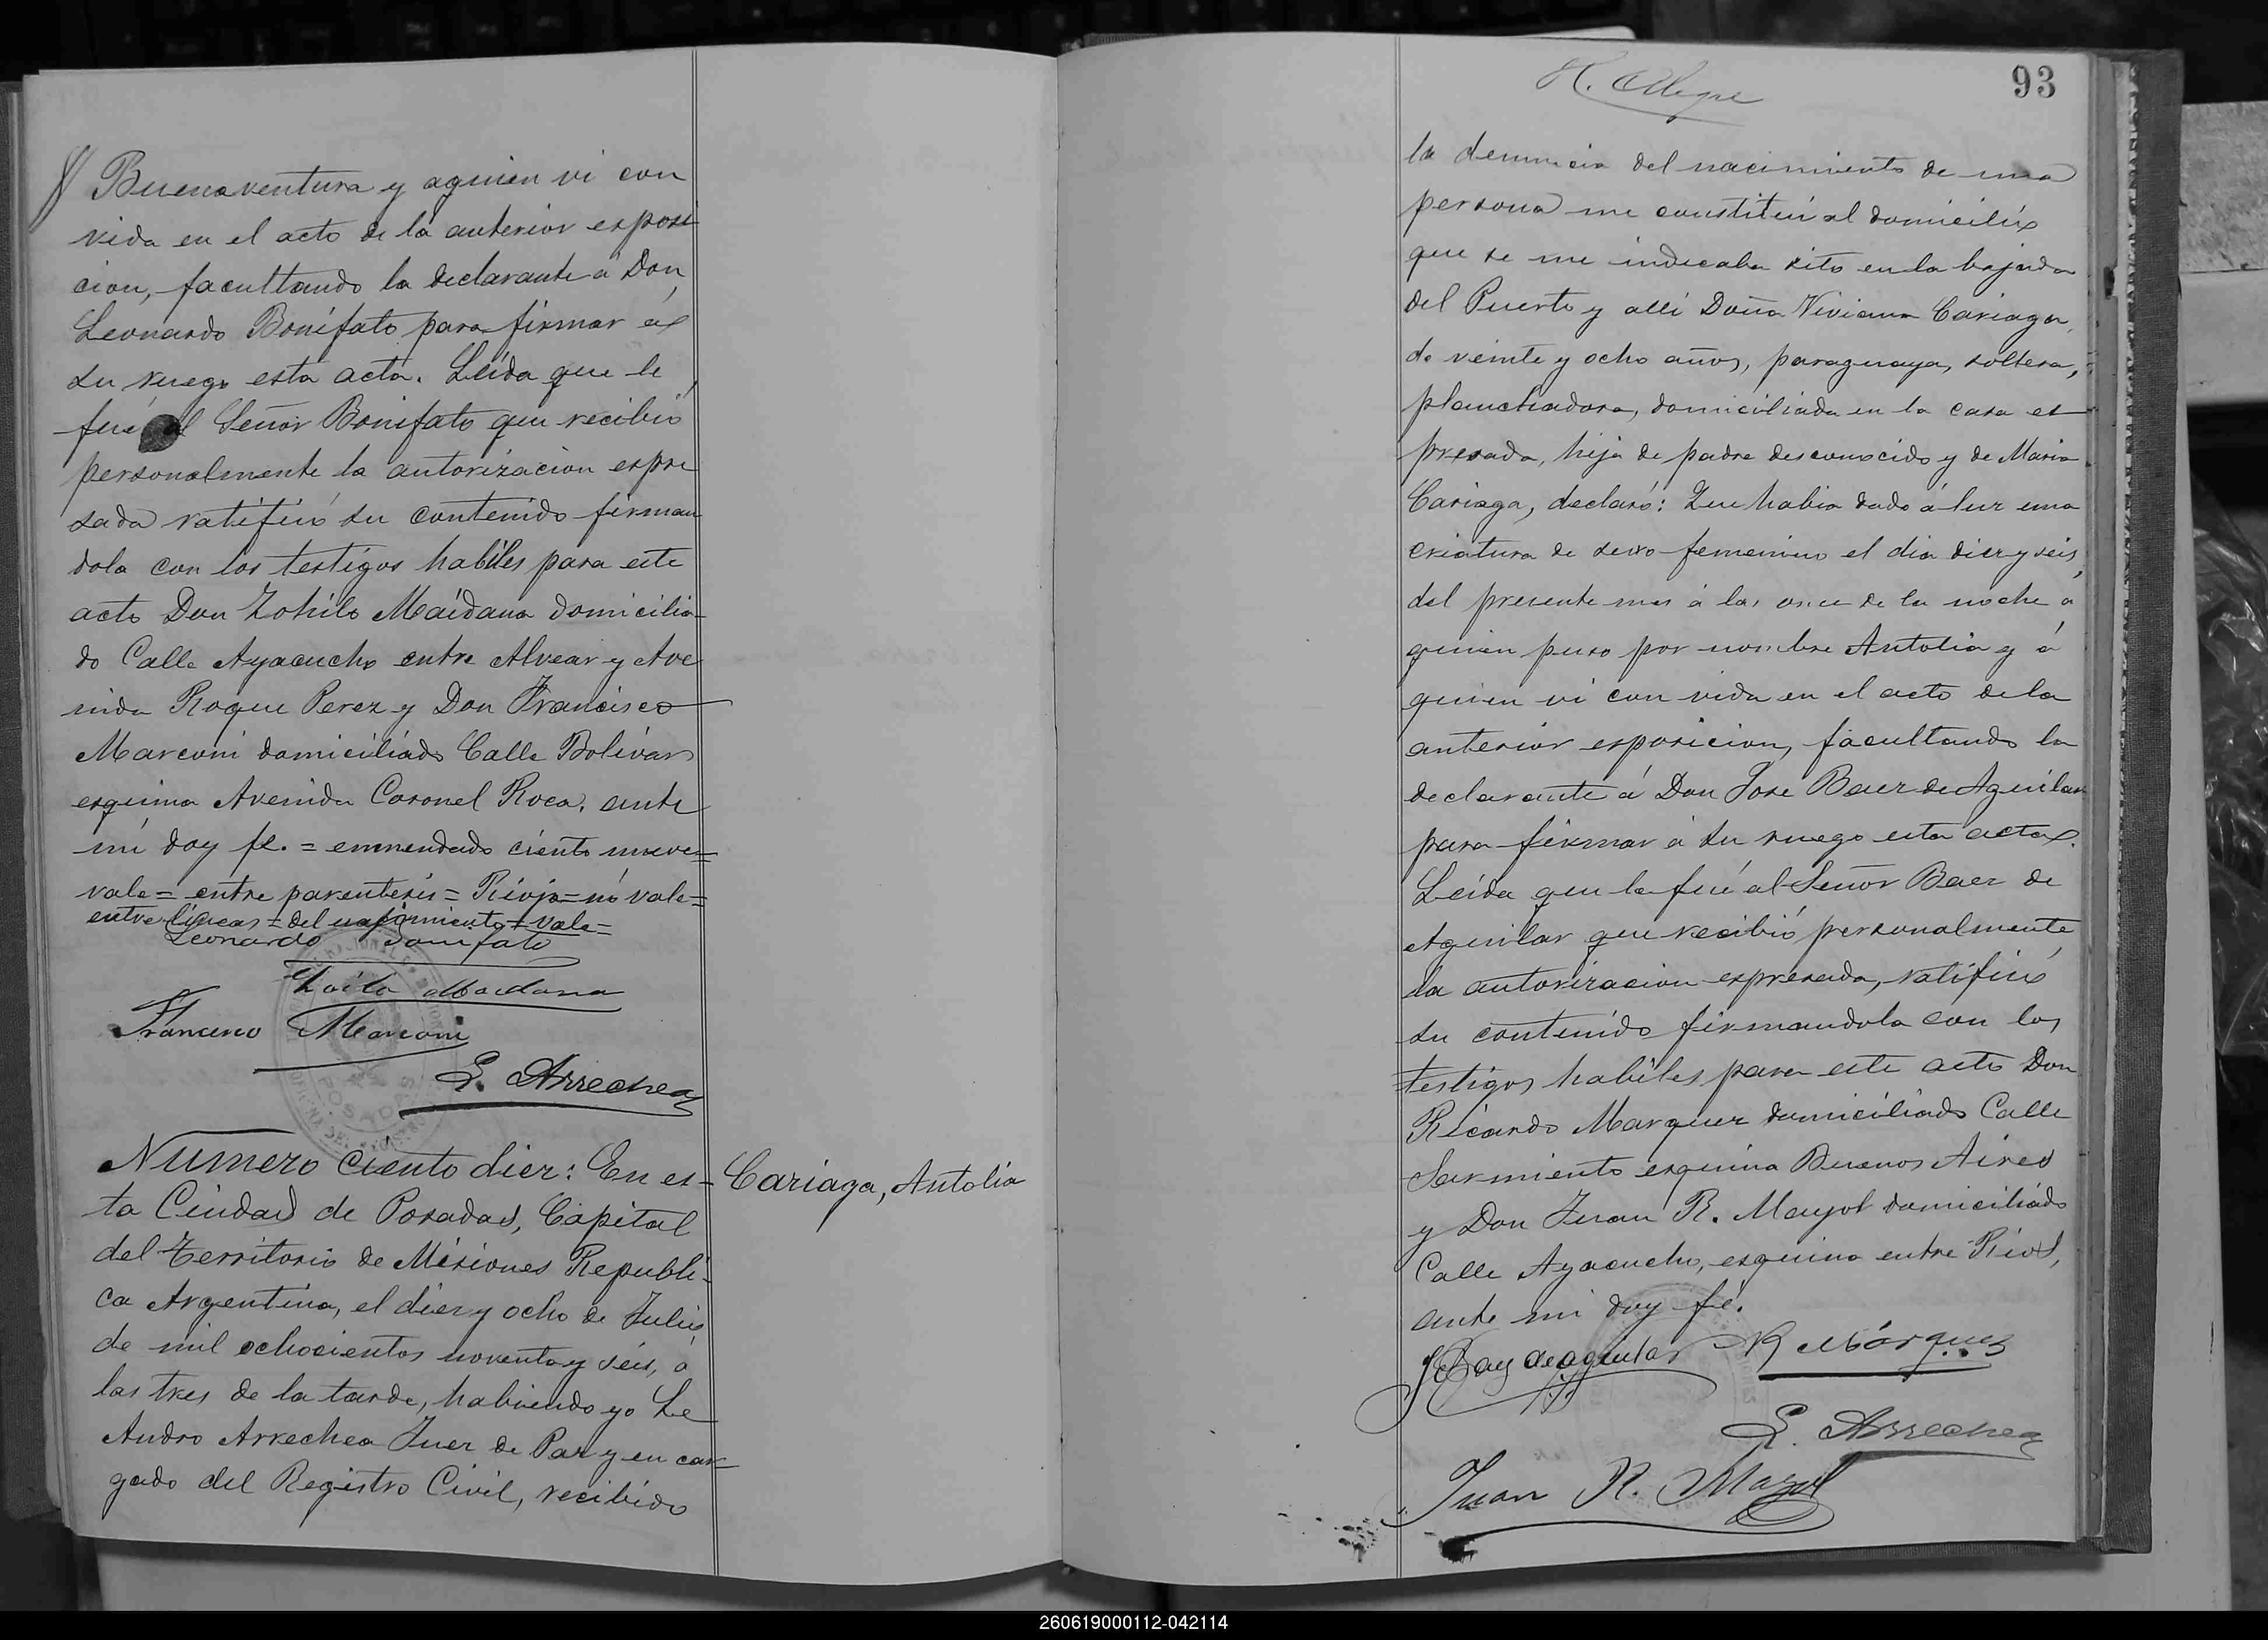 Buenaventura y aquien vi con
vida en el acto de la anterior exposi
cion, facultando la declarante a Don
Leonardo Bonifato para firmar a
su ruego esta acta. Leida que le
fué al Señor Bonifato que recibió
personalmente la autorizacion espre
sada ratificó su contenido firman
dola con los testigos habiles para este
acto Don Zohilo Maidana domicilia
do Calle Ayacucho entre Alvear y Ave
nida Roque Perez y Don Francisco
Marconi domiciliado Calle Bolivar
esquina Avenida Coronel Roca, ante
mi doy fé. = enmendado ciento nueve=
vale= entre parentesis= Rioja= nó vale=
entre lineas = del nacimiento = vale=
Leonardo Bonifato
Zoilo Maidana
Francesco Marconi
L. Arrechea
Numero Ciento diez: En es-
Cariaga, Antolia
ta Ciudad de Posadas, Capital
del Territorio de Misiones Republi-
ca Argentina, el diez y ocho de Julio
de mil ochocientos noventa y seis, á
las tres de la tarde, habiendo yo Le
Andro Arrechea Juez de Paz y en car
gado del Registro Civil, recibido
93
la denuncia del nacimiento de una
persona me constituí al domicilio
que se me indicaba sito en la bajada
del Puerto y alli Doña Viviana Cariaga,
de veinte y ocho años, paraguaya, soltera,
planchadora, domiciliada en la casa es
presada, hija de padre desconocido y de Maria
Cariaga, declaró: Que habia dado á luz una
criatura de sexo femenino el dia diez y seis
del presente mes á las once de la noche á
quien puso por nombre Antolia y á
quien vi con vida en el acto de la
anterior esposicion, facultando la
declarante á Don Jose Baez de Aguilar
para firmar á su ruego esta acta.
Leida que le fué al Señor Baez de
Aguilar que recibió personalmente
la autorizacion espresada, ratificó
su contenido firmandola con los
testigos habiles para este acto Don
Ricardo Marquez domiciliado Calle
Sarmiento esquina Buenos Aires
y Don Juan R. Mayol domiciliado
Calle Ayacucho, esquina entre Rios,
ante mi doy fé.
J Baez de aguilar R Márquez
L. Arrechea
Juan R. Mayol
260619000112-042114